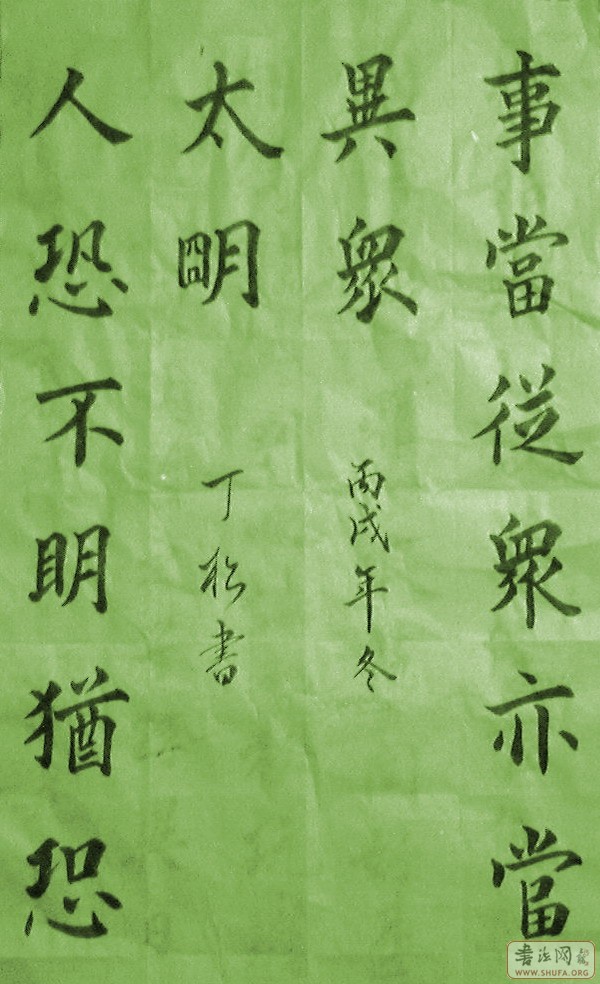 事當從衆亦當
異衆
丙戌年冬
人恐不明猶恐
太朙
丁松書
書法网
WWW.SHUFA.ORG